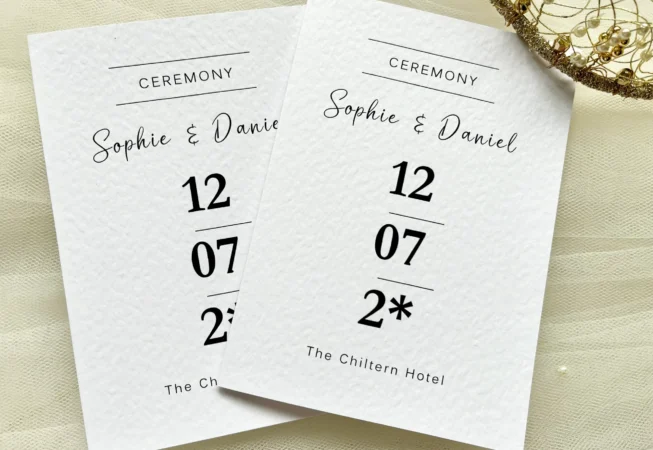 CEREMONY
Sophie & Danie
12
07
2*
The Ch
CEREMONY
Sophie & Daniel
12
07
2*
The Chiltern Hotel